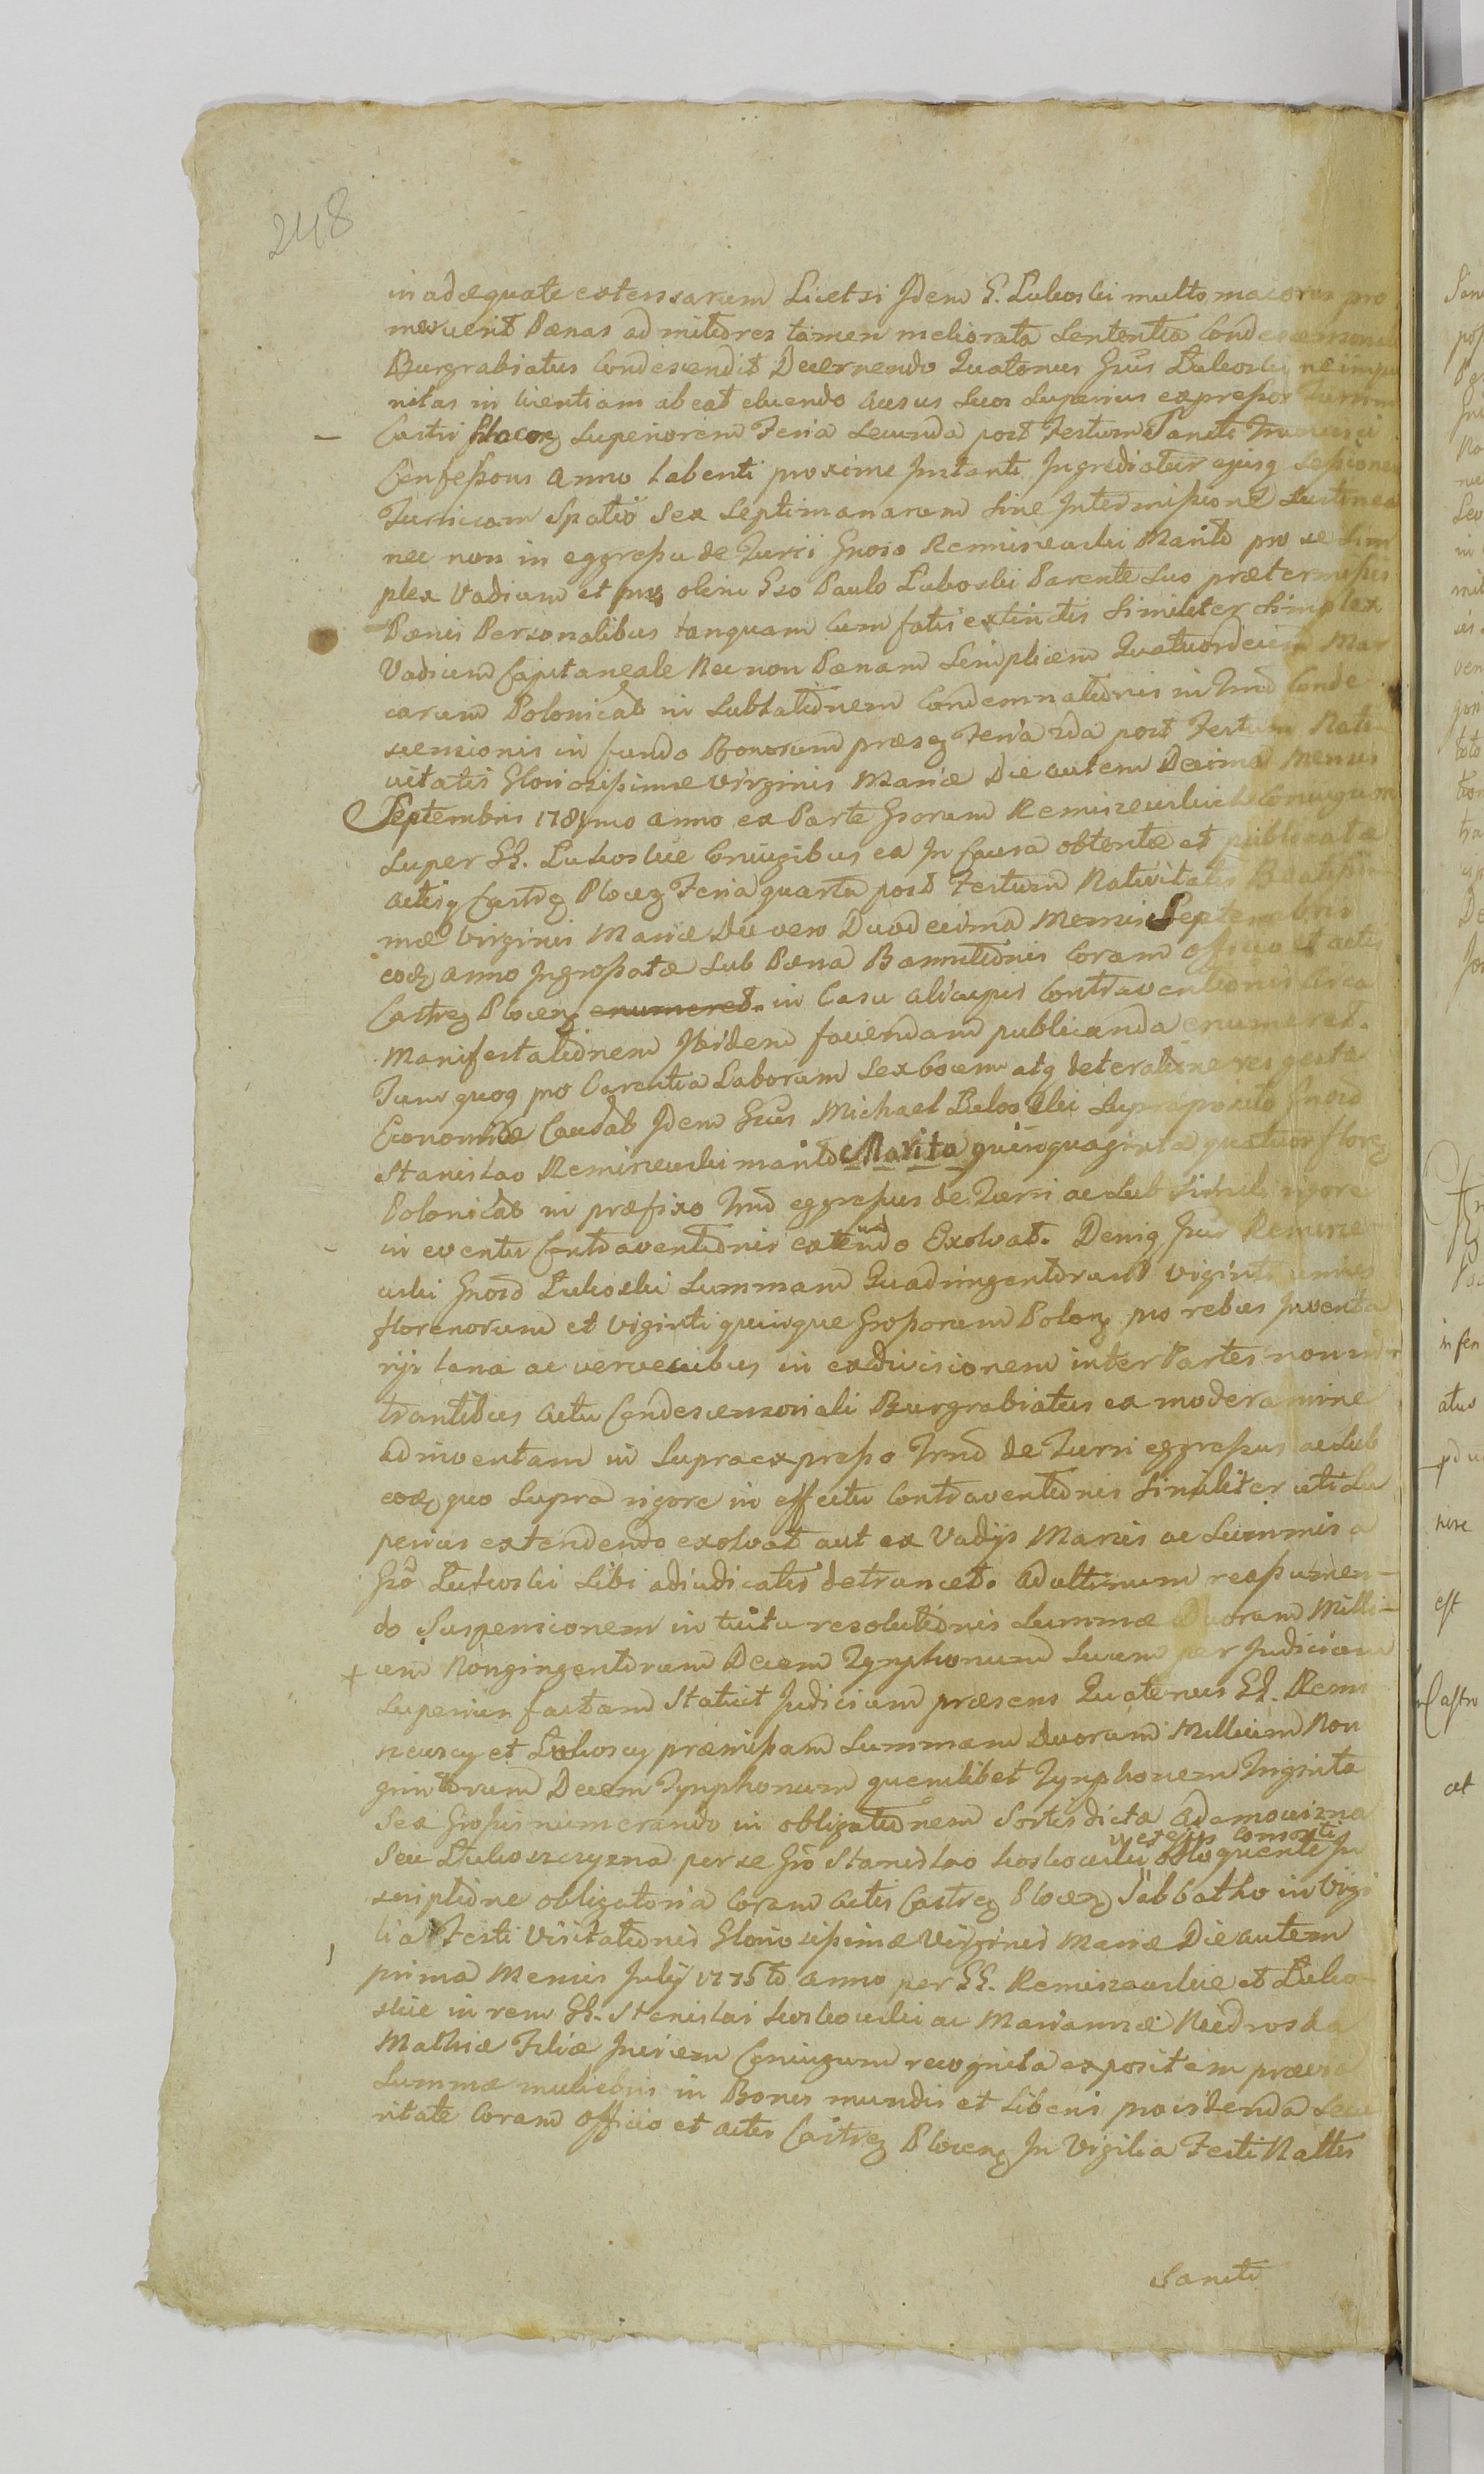 248
in adæquate extensarum Licet si Jdem G. Lukoski multo maiores pro
meruerit Pænas ad mitiores tamen meliorata Sententia Condescensoriale
Burgrabiatus Condescendit Decernendo Quatenus Gsus Lukoski ne impu
nitas in licentiam abeat eluendo ausus suos superius expressos Turrim
Castri Plocen superiorem Feria secunda post Festum Sancti Francisci
Confessoris anno labenti proxime Instanti Ingrediatur ejusq sessionem
Turricam Spatio Sex Septimanarum sine Intermissione sustineat
nec non in eggressu de Turri Gnoso Remiszewski Marito pro se sim
plex Vadium et pro olim Gso Paulo Lukoski Parente suo prætermissis
Pænis Personalibus tanquam cum fatis extinctis similiter simplex
Vadium Capitaneale Nec non Pænam simplicem Quatuordecim Mar
carum Polonical in sublationem Condemnationis in Tmo Conde
scensionis in fundo Bonorum præsen Feria 2da post Festum Nati-
vitatis Gloriosissimæ Virginis Mariæ Die autem Decima Mensis
Septembris 1781mo anno ex Parte Gsorum Remiszewskich Coniugum
super GG. Lukoskie Coniugibus ea In Causa obtentæ et publicatæ
actisq Castren Plocen Feria quarta post Festum Nativitatis Beatissi-
mæ Virginis Mariæ Die vero Duodecima Mensis Septembris
eodem anno Ingrossatæ sub Pæna Bannitionis Coram officio et actis
Castren Plocen enumeret. in Casu alicujus Contraventionis circa
Manifestationem Ibidem faciendam publicanda enumeret.
Tum quoq pro Carentia Laborum sex boum atq deteratione res gesta
Economicæ Jdem Gsus Michael Lukoski supraposito Gnoso
Stanislao Remiszewski marito Marita quinquaginta quatuor floren
Polonical in præfixo Tmo eggressus de Turri ac sub simili rigore
in eventu Contraventionis extendendo Exolvat. Deniq Gsus Remisze-
wski Gnoso Lukoski summam Quadringentorum viginti unius
florenorum et viginti quinque Grossorum Polon pro rebus Inventa
rijs lana ac vervecibus in exdivisionem inter Partes non in
trantibus actu Condescensoriali Burgrabiatus ex moderamine
adinventam in supraexpresso Tmo de Turri eggressus ac sub
eodem quo supra rigore in effectu Contraventionis similiter uti su
perius extendendo exolvat aut ex Vadijs Marcis ac summis a
Gso Lukoski sibi adiudicatis detruncet. ad ultimum reassumen-
do suspensionem in tuitu resolutionis summæ Duorum Milli-
um Nongingentorum Decem Tynphonum suum per Judicium
superius factam Statuit Judicium præsens Quatenus GG. Remi
szewscy et Lukoscy præmissam summam Duorum Millium Non
gintorum Decem Tynphonum quemlibet Tynphonem Triginta
Sex Grossis numerando in obligationem Sortis dictæ Adamowizna
seu Lukoszczyzna per se Gso Stanislao et ejus consorti In
scriptione obligatoria Coram actis Castren Plocen Sabbatho in Vigi
lia Festi Visitationis Gloriosissimæ Virginis Mariæ Die autem
prima Mensis Julij 1775to anno per GG. Remiszewskie et Luko-
skie in rem GG. Stanislai ac Mariannæ
Mathiæ Filiæ Coniugum recognita expositam prævia
summæ muliebris in Bonis mundis et liberis providenda secu
ritate Coram officio et actis Castren Plocen In Vigilia Festi Nattis
Sancti